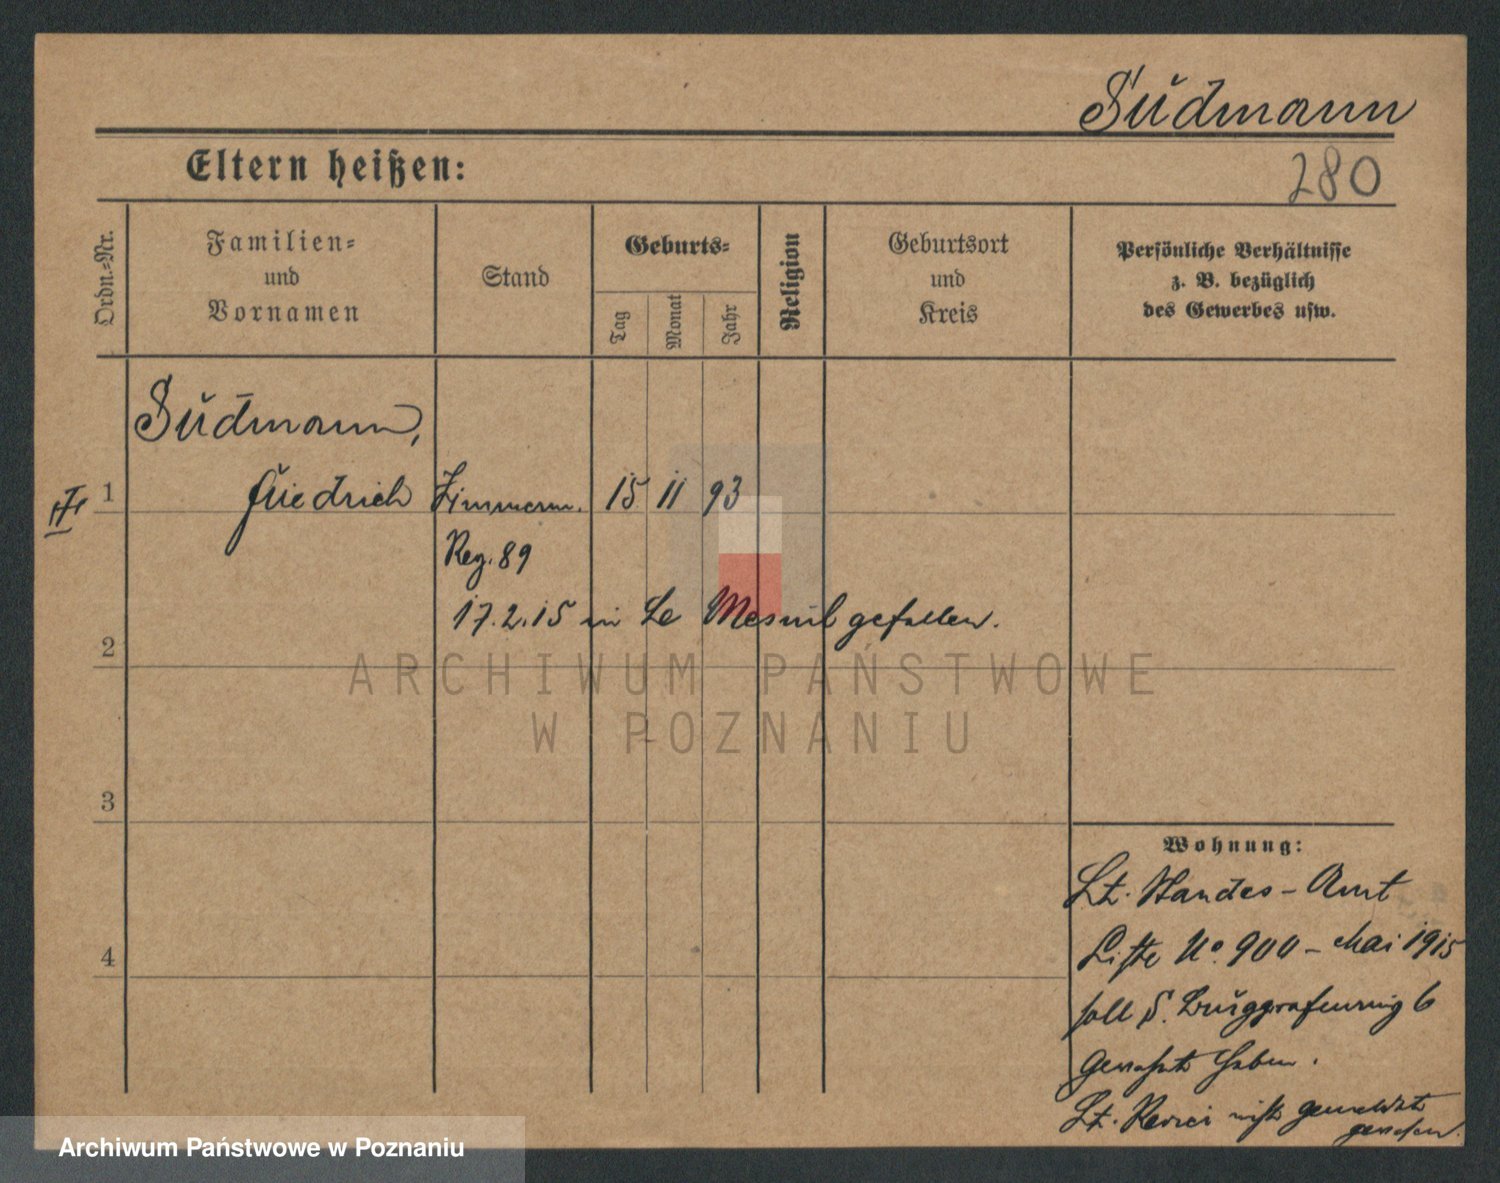 Südmann
280
Eltern heißen:
Ordn.=Nr.
Familien=
und
Vornamen
Stand
Geburts=
Tag
Monat
Jahr
Religion
Geburtsort
und
Kreis
Persönliche Verhältnisse
z. B. bezüglich
des Gewerbes usw.
Südmann,
1 Friedrich Zimmerm. 15 11 93
Reg. 89
17.2.15 in Le Mesnil gefallen.
2
ARCHIWUM PAŃSTWOWE
W POZNANIU
3
Wohnung:
Lt. Standes-Amt
Liste No. 900 - Mai 1915
4
soll S. Burggrafenring 6
gewohnt haben.
Lt. Revier nicht gemeldet
Archiwum Państwowe w Poznaniu